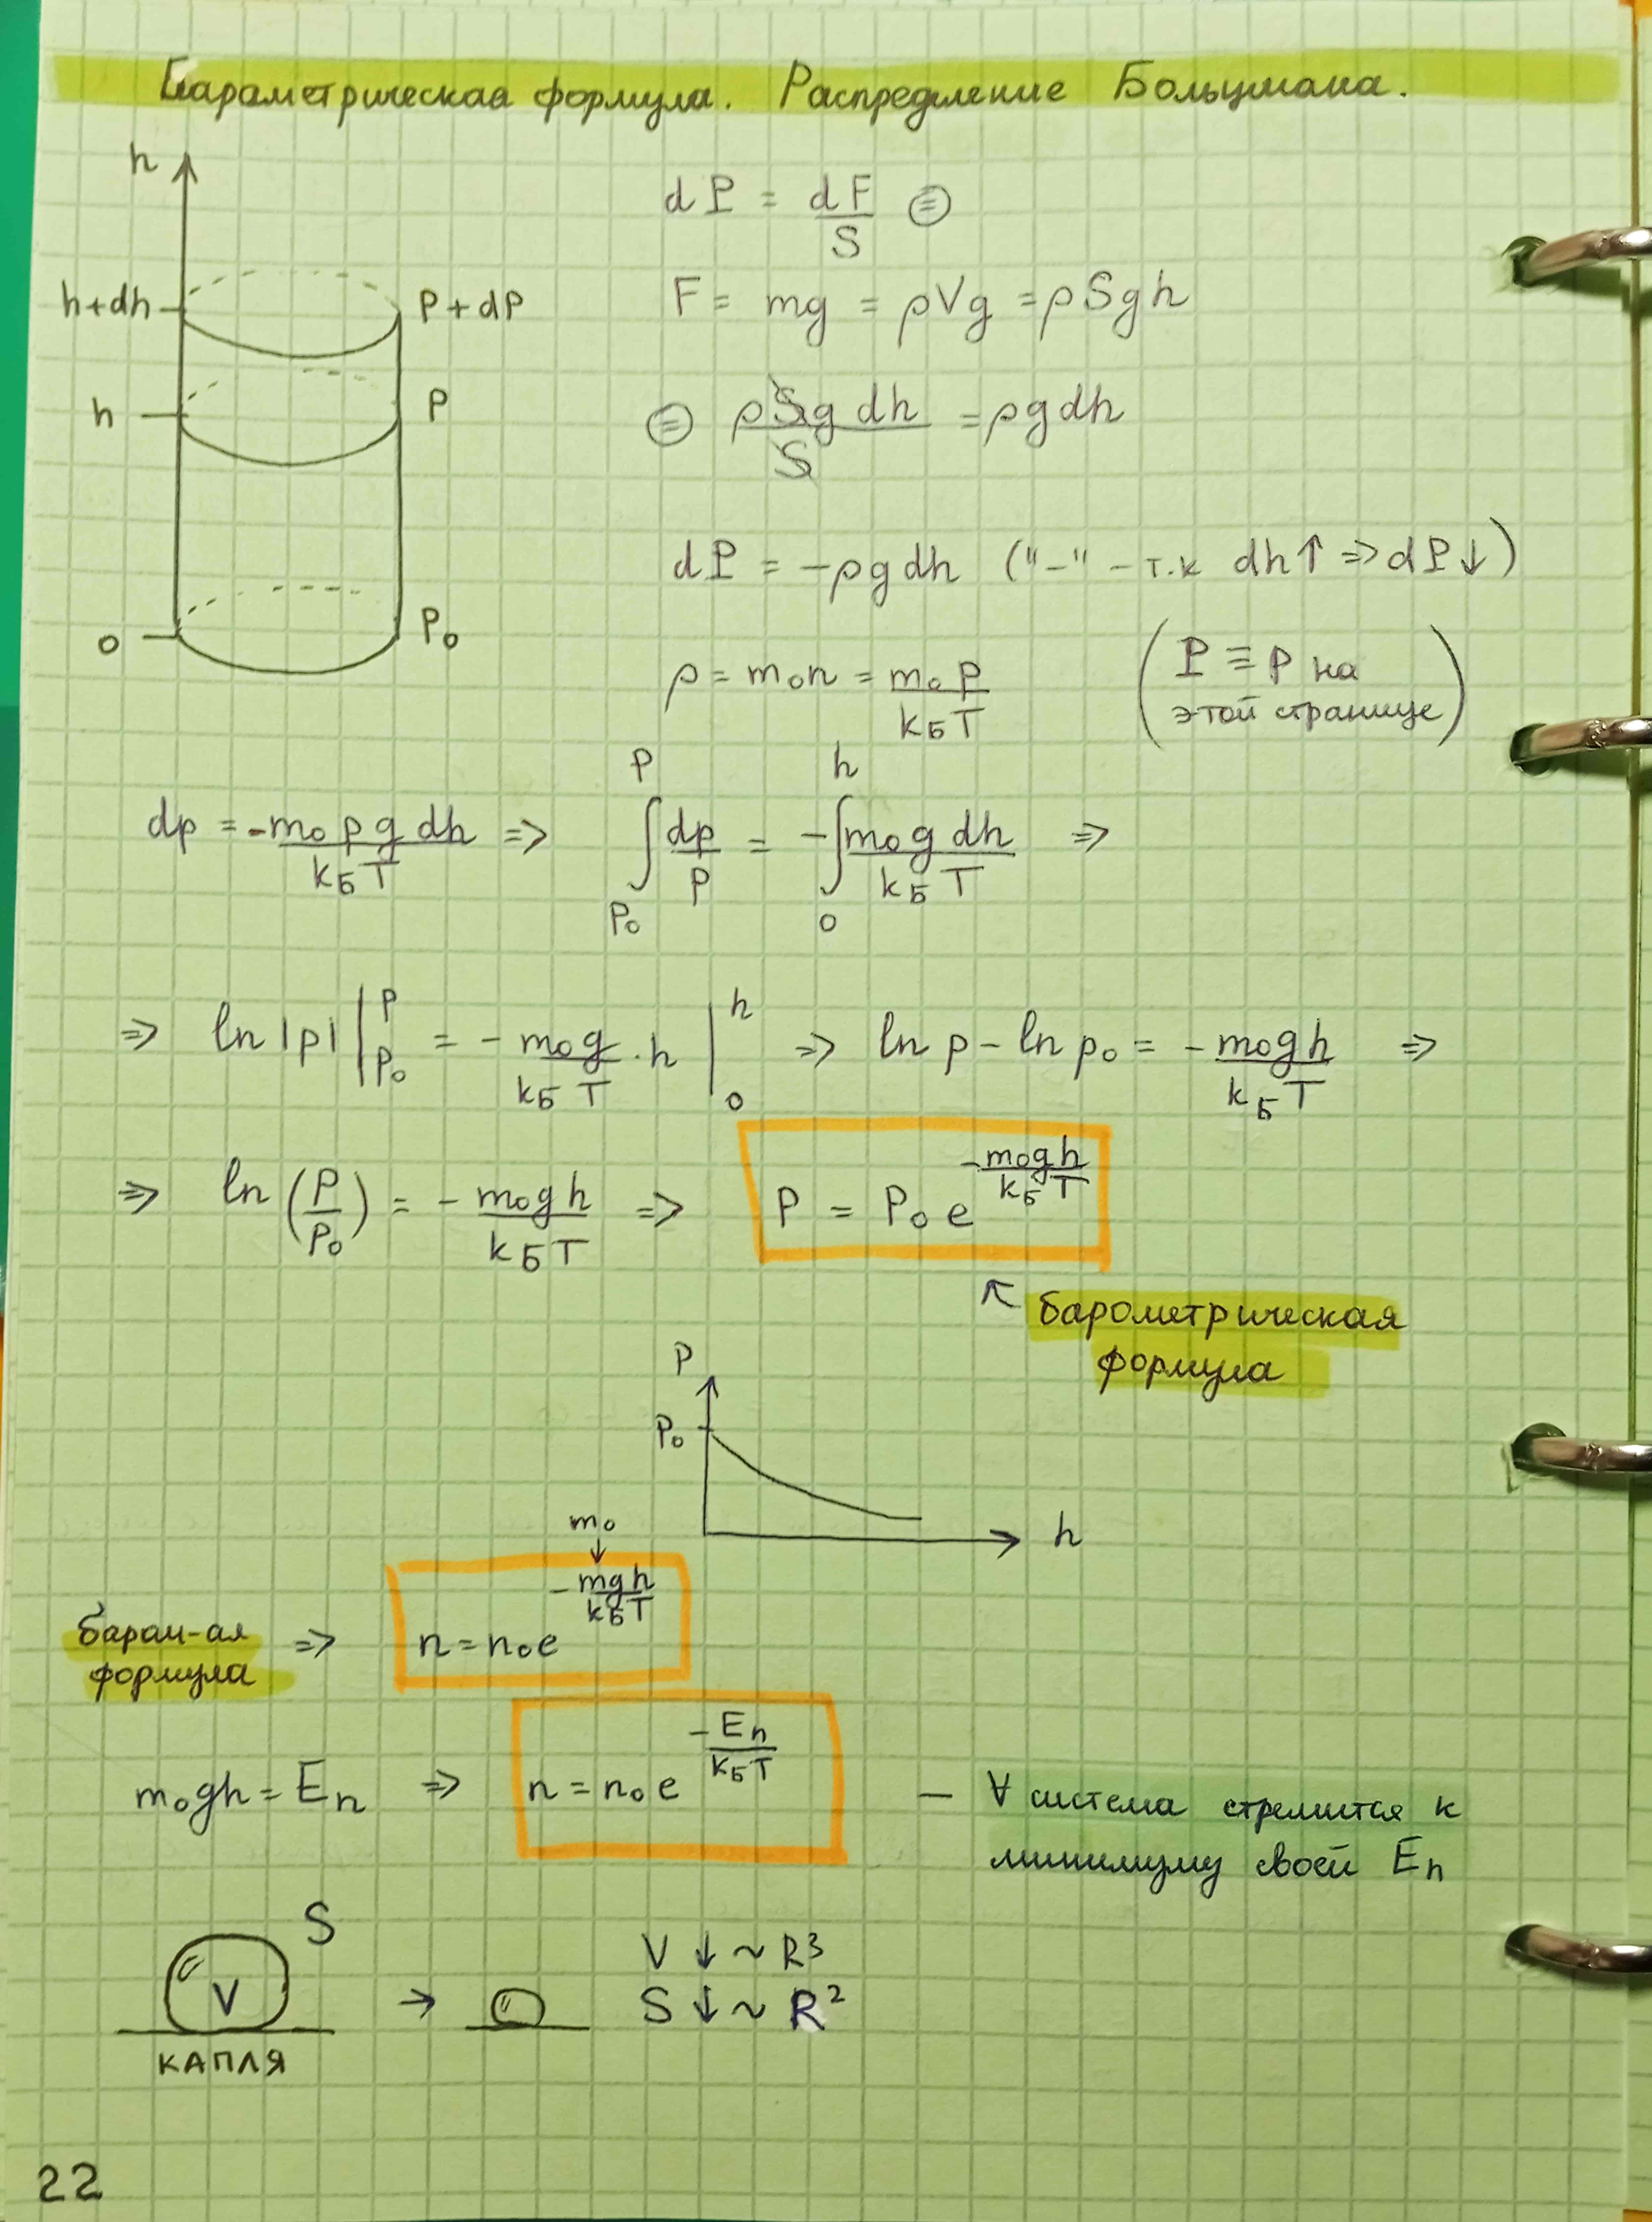 Барометрическая формула. Распределение Больцмана.
h
h+dh
P+dP
h
P
0
P₀
dP = dF/S ⊜
F = mg = ρVg = ρSgh
⊜ ρSg dh/S = ρg dh
dP = -ρg dh ("-" - т.к dh↑ => dP↓)
ρ = m₀n = m₀P/kБT
(P ≡ p на
этой странице)
dp = -m₀pg dh/kБT => ∫_{P₀}^{P} dp/p = -∫_{0}^{h} m₀g dh/kБT =>
=> ln|p| |_{P₀}^{P} = -m₀g/kБT · h |_{0}^{h} => ln p - ln p₀ = -m₀gh/kБT =>
=> ln(P/P₀) = -m₀gh/kБT => P = P₀ e^{-m₀gh/kБT}
↖ барометрическая
формула
P
P₀
h
m₀
↓
баром-ая
формула => n = n₀e^{-mgh/kБT}
m₀gh = Eп => n = n₀e^{-Eп/kБT} — ∀ система стремится к
минимуму своей Eп
S
V
→
КАПЛЯ
V ↓ ~ R³
S ↓ ~ R²
22